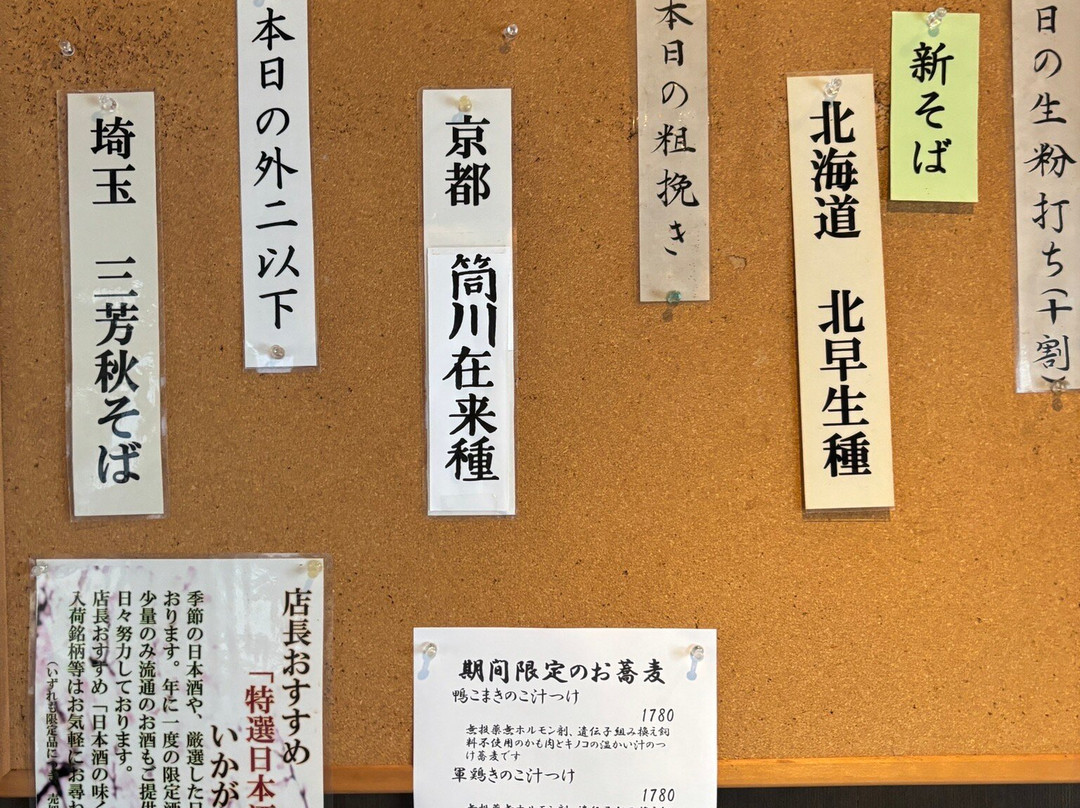 日の生粉打ち(十割)
新そば
北海道 北早生種
本日の粗挽き
京都 筒川在来種
本日の外二以下
埼玉 三芳秋そば
店長おすすめ
「特選日本
いかが
季節の日本酒や、厳選した日
おります。年に一度の限定酒
少量のみ流通のお酒もご提供
日々努力しております。
店長おすすめ「日本酒の味く
入荷銘柄等はお気軽にお尋ね
(いずれも限定品に
期間限定のお蕎麦
鴨こまきのこ汁つけ
1780
無投薬無ホルモン剤、遺伝子組み換え飼
料不使用のかも肉とキノコの温かい汁のつ
け蕎麦です
軍鶏きのこ汁つけ
1780